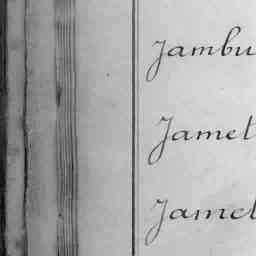 Jambu
Jamet
Jamet